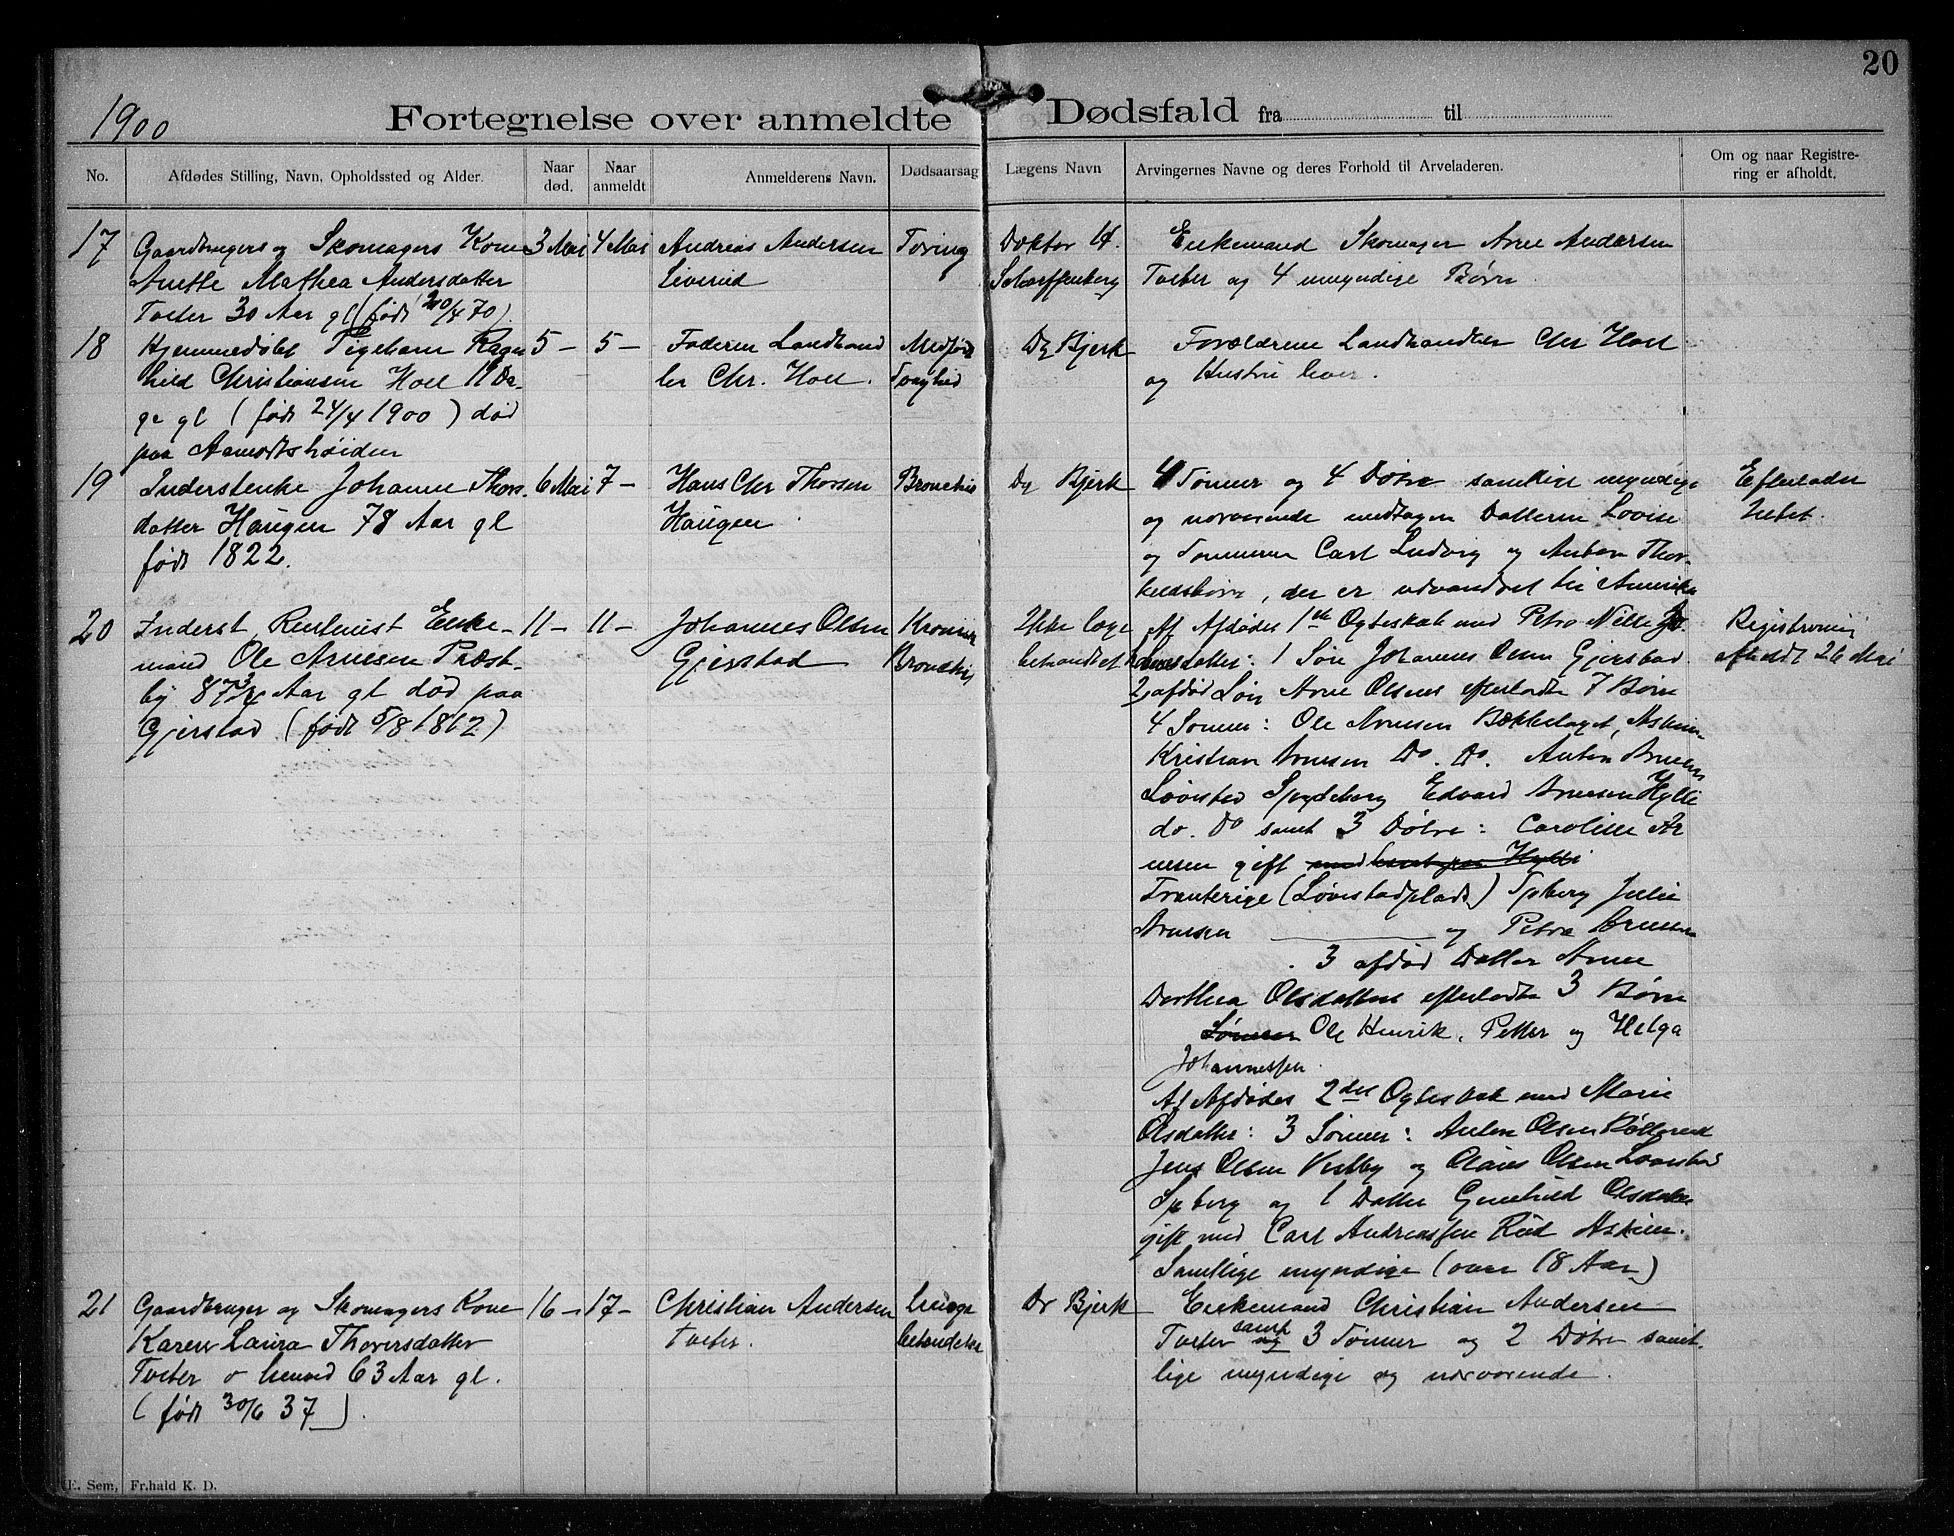 20
1900
Fortegnelse over anmeldte Dødsfald fra til
No.
Afdødes Stilling, Navn, Opholdssted og Alder.
Naar død.
Naar anmeldt
Anmelderens Navn.
Dødsaarsag
Lægens Navn
Arvingernes Navne og deres Forhold til Arveladeren.
Om og naar Registre-
ring er afholdt.
17
Gaardbrugers og Skomagers Kone
Anette Mathea Andersdatter
Tveter 30 Aar gl (født 20/4 70)
3 Mai
4 Mai
Andreas Andersen
Liverud
Tæring
Doktor H.
Scharffenberg
Enkemand Skomager Arne Andersen
Tveter og 4 umyndige Børn
18
Hjemmedøbt Pigebarn Ragn
hild Christiansen Holt 11 Da-
ge gl (født 24/4 1900) død
paa Aamodtshøiden
5 –
5 –
Faderen Landhand
ler Chr. Holt.
Medfødt
Svaghed
Dr Bjerk
Forældrene Landhandler Chr Holt
og Hustru lever.
19
Inderstenke Johanne Thors
datter Haugen 78 Aar gl
født 1822.
6 Mai
7 –
Hans Chr Thorsen
Haugen
Bronchit
Dr Bjerk
4 Sønner og 4 Døtre samtlige myndige
og nærværende undtagen Datteren Lovise
og Sønnerne Carl Ludvig og Anton Thor-
, der er udvandret til Amerika
Efterlader
Intet.
20
Inderst Enke-
mand Ole Arnesen Præst-
by 87 3/4 Aar gl død paa
Gjerstad (født 5/8 1812)
11 –
11 –
Johannes Olsen
Gjerstad
Kronisk
Bronchit
Ikke læge
behandlet
Af Afdødes 1ste Ægteskab med Petro Nille Jo-
datter: 1 Søn Johannes Olsen Gjerstad
2, afdød Søn Arne Olsens efterladte 7 Børn
4 Sønner: Ole Arnesen Bekkelaget, Askim
Kristian Arnesen Do. Do. Anton Arnesen
Løvestad Spydeberg Edvard Arnesen Hylli
do. Do samt 3 Døtre: Caroline Ar
nesen gift med Hylli
(Løvestadplads) Spberg Julie
Arnesen og Petra Arnesen
. 3 afdød Datter Anne
Dorthea Olsdatters efterladte 3 Børn
Sønner Ole Henrik, Petter og Helga
Johannessen.
Af Afdødes 2det Ægteskab med Marie
Olsdatter: 3 Sønner: Anton Olsen
Jens Olsen Vestby og Olsen Løvestad
Spberg og 1 Datter Gunhild Olsdatter
gift med Carl Andreassen Rud Askim.
Samtlige myndige (over 18 Aar)
Registrering
afholdt 26 Mai
21
Gaardbruger og Skomagers Kone
Karen Laura Thorersdatter
Tveter 63 Aar gl.
(født 30/6 37)
16 –
17 –
Christian Andersen
Tveter.
Lunge
betændelse
Dr Bjerk
Enkemand Christian Andersen
Tveter og samt 3 Sønner og 2 Døtre samt-
lige myndige og nærværende.
E. Sem, Fr.hald K. D.